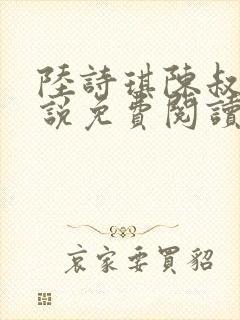 陸詩琪陳叔
說免費閱讀
哀家要買貂